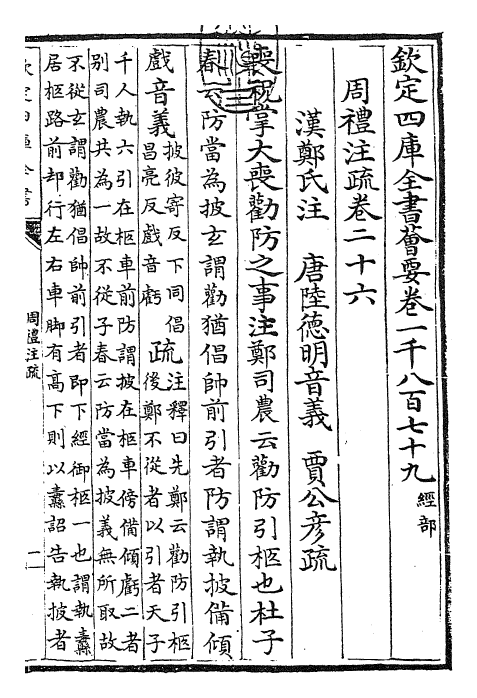 欽定四庫全書薈要卷一千八百七十九 經部
周禮注疏卷二十六
漢鄭氏注 唐陸德明音義 賈公彦疏
喪祝掌大喪勸防之事注鄭司農云勸防引柩也杜子
春云防當為披玄謂勸猶倡帥前引者防謂執披備傾
戲音義披彼寄反下同倡
昌亮反戲音虧疏注釋曰先鄭云勸防引柩
後鄭不從者以引者天子
千人執六引在柩車前防謂披在柩車傍備傾虧二者
别司農共為一故不從子春云防當為披義無所取故
不從玄謂勸猶倡帥前引者即下經御柩一也謂執纛
居柩路前却行左右車脚有高下則以纛詔告執披者
周禮注疏
一